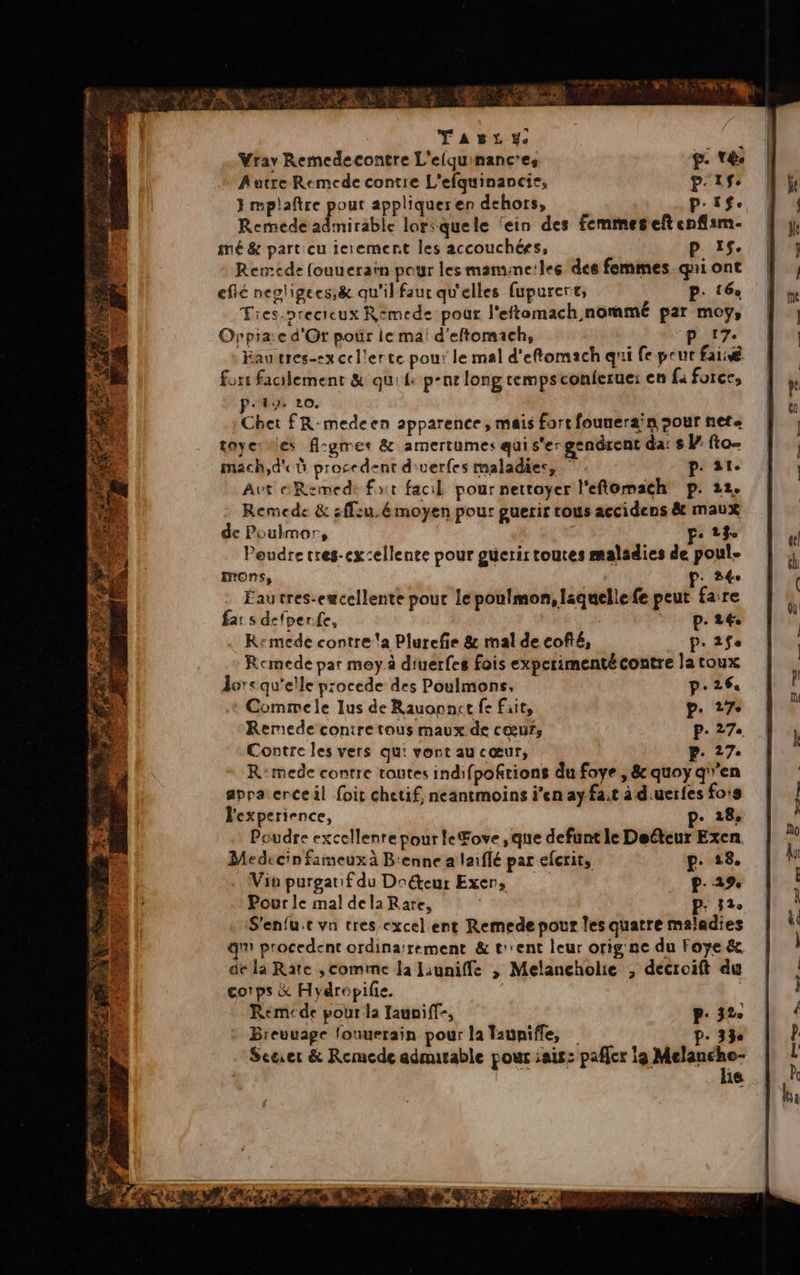 TABLE.
Vray Remede contre L'eſquinancie,
Autre Remede contre L'eſquinancie, p. 15.
Emplaſtre pour appliquer en dehors, p. 15.
Remede admirable lorsque le ſein des femmes eſt enflam-
mé & particulierement les accouchées, p 15.
Remede ſouuerain pour les mammelles des femmes qui ont
eſté negligées, & qu'il faut qu'elles ſupurent, p. 16.
Tres-precieux Remede pour l'eſtomach, nommé par moy,
Oppiate d'Or pour le mal d'eſtomach, p 17.
Eau tres-excellente pour le mal d'eſtomach qui ſe peut faire
fort facilement & qui ſe peut long temps conſeruer en ſa force,
p. 19. 20.
Chet ſ R-mede en apparence, mais fort ſouuerain pour nete
toyer les flegmes & amertumes qui s'engendrent dans l'Eſto-
mach, d'où procedent diuerſes maladies, p. 21.
Autre Remede fort facil pour nettoyer l'eſtomach p. 22.
Remede & aſſeuré moyen pour guerir tous accidens & maux
de Poulmon, p. 23.
Poudre tres-excellente pour guerir toutes maladies de poul-
mons, p. 24.
Eau tres-excellente pour le poulmon, laquelle ſe peut faire
ſans deſpenſe, p. 24.
Remede contre la Plureſie & mal de coſté, p. 25.
Remede par moy à diuerſes fois experimenté contre la toux
lors qu'elle procede des Poulmons, p. 26.
Comme le Ius de Rauonnet ſe fait, p. 27.
Remede contre tous maux de cœur, p. 27.
Contre les vers qui vont au cœur, p. 27.
Remede contre toutes indiſpoſitions du foye, & quoy qu'en
apparence il ſoit chetif, neantmoins i'en ay fait à diuerſes fois
l'experience, p. 28.
Poudre excellente pour le Foye, que defunt le Docteur Exen
Medecin fameux à Bienne a laiſſé par eſcrit, p. 28.
Vin purgatif du Docteur Exen, p. 29.
Pour le mal de la Rate, p. 32.
S'enſuit vn tres excellent Remede pour les quatre maladies
qui procedent ordinairement & tirent leur origine du Foye &
de la Rate, comme la Iauniſſe, Melancholie, decroiſt du
corps & Hydropiſie.
Remede pour la Iauniſſe, p. 32.
Breuuage ſouuerain pour la Iauniſſe, p. 33.
Secret & Remede admirable pour faire paſſer la Melancho-
lie